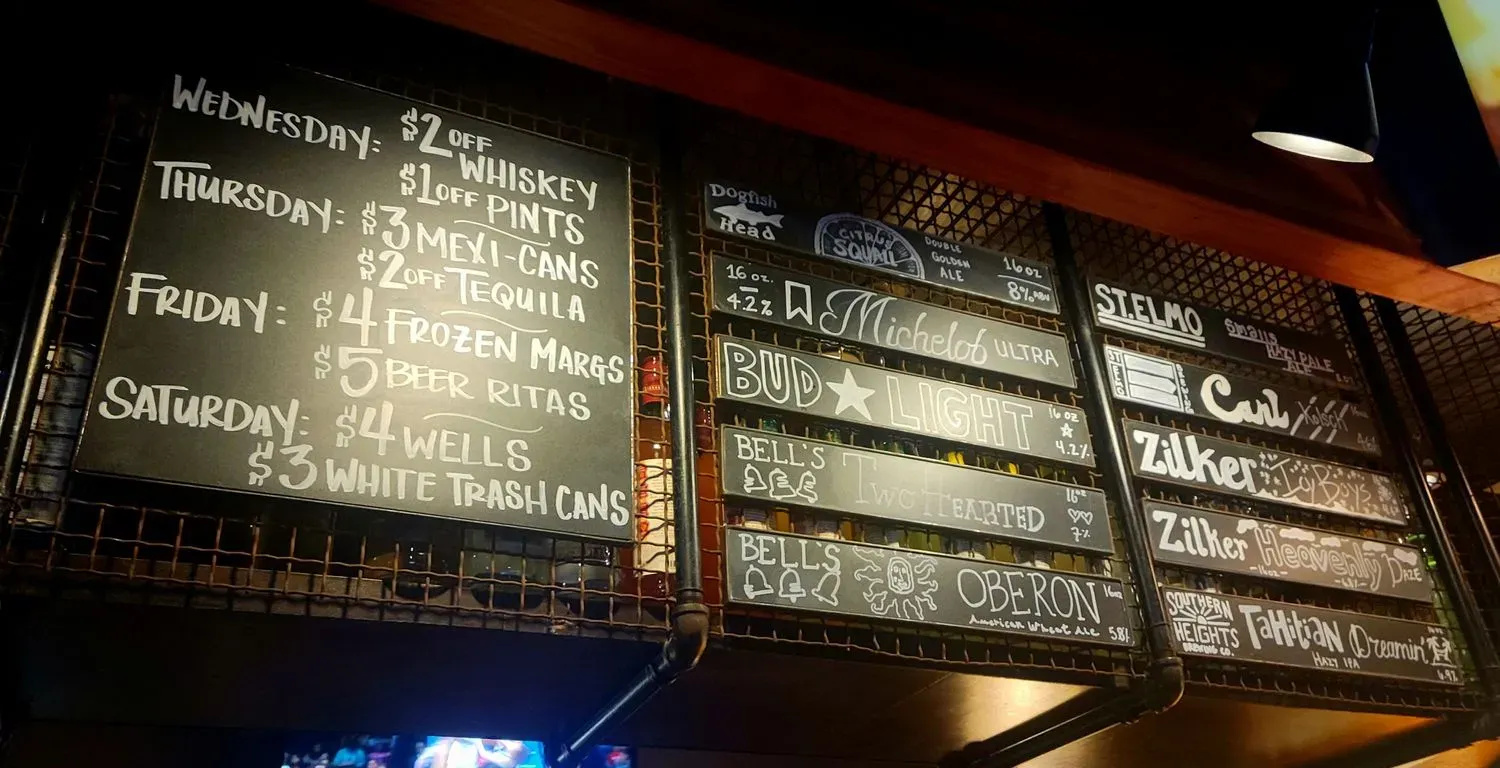 WEDNESDAY: $2 OFF WHISKEY
$1 OFF PINTS
THURSDAY: $3 MEXI-CANS
$2 OFF TEQUILA
FRIDAY: $4 FROZEN MARGS
$5 BEER RITAS
SATURDAY: $4 WELLS
$3 WHITE TRASH CANS
Dogfish
Head
CITRUS
SQUALL
DOUBLE
GOLDEN
ALE
16 oz
8% ABV
16 oz.
4.2%
Michelob ULTRA
BUD LIGHT
16 oz
4.2%
BELL'S
Two HEARTED
16oz
7%
BELL'S
OBERON
American Wheat Ale
16oz
5.8%
ST.ELMO
HAZY PALE
Carl Kolsch
Zilker Icy Boys
Zilker Heavenly DAZE
SOUTHERN
HEIGHTS
BREWING CO.
TAHITIAN Dreamin'
HAZY IPA